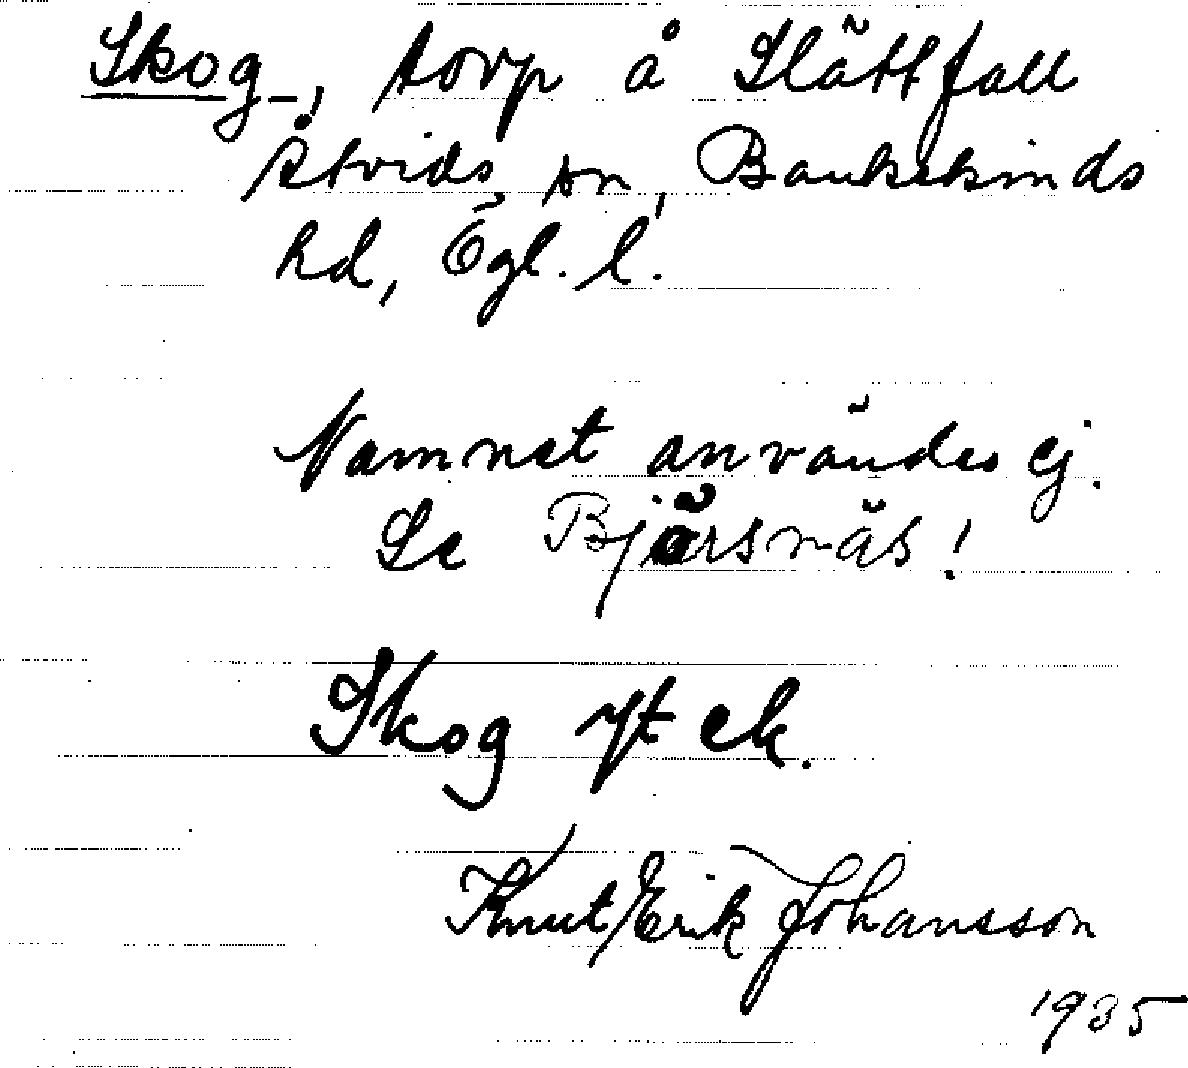 Skog, torp å Slättfall
Åtvids sn, Bankekinds
hd, Ögl. l.
Namnet användes ej.
Se Bjärsnäs!
Skog yt ek.
Knut/Erik Johansson
1935